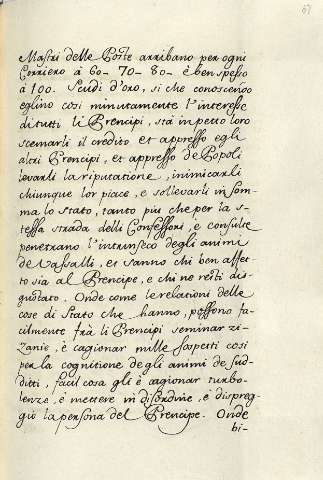 67
Mastri delle Poste arribano per ogni
Corriero à 60- 70- 80- è ben spesso
à 100. Scudi d'oro, si che conoscendo
eglino cosi minutamente l'interesse
di tutti li Prencipi, stà in petto loro
scemarli il credito et appresso egli
altri Prencipi, et appresso de Popoli
levarli la riputatione, inimicarli
chiunque lor piace, e sollevarli in som-
ma lo stato, tanto piu che per la s-
tessa strada delli Confessori, e consulte
penetrano l'intrinseco degli animi
de Vassalli, et sanno chi ben affet-
to sia al Prencipe, e chi ne resti dis-
gustato. Onde come le relationi delle
cose di Stato che hanno, possono fa-
cilmente frà li Prencipi seminar zi-
zanie, è cagionar mille sospetti cosi
per la cognitione degli animi de sud-
diti, facil cosa gli è cagionar turbo-
lenze, è mettere in disordine, è dispreg-
gio la persona del Prencipe. Onde
bi-